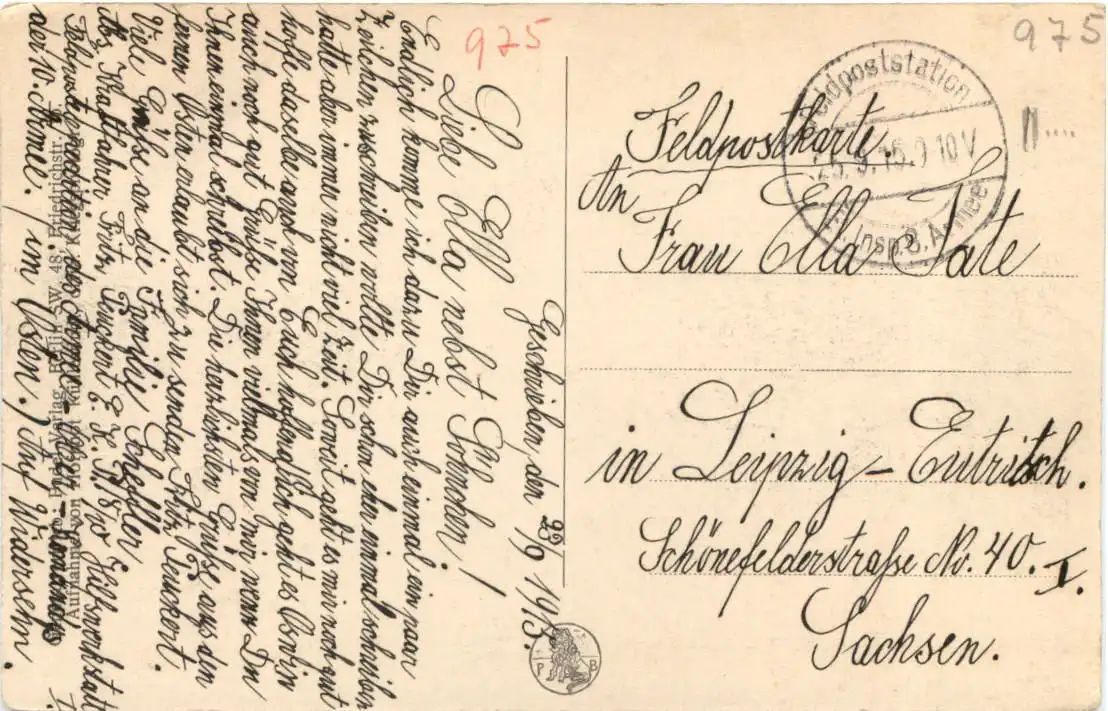 975
975
Feldpoststation
25.9.15.9-10V
Insp. 8. Armee
Feldpostkarte.
An
Frau Ella Sate
in Leipzig-Eutritsch.
Schönefelderstraße No. 40. I.
Sachsen.
Geschrieben den 23/9 1915.
Liebe Ella nebst Sönnchen!
Endlich komme ich dazu Dir auch einmal ein paar
Zeilchen zuschreiben wollte Dir schon ehr einmal schreiben
hatte aber immer nicht viel Zeit. Soweit geht es mir noch gut
hoffe dasselbe auch von Euch hoffendlich geht es Oswin
auch noch gut Grüße Ihnen vielmals von mir wenn Du
Ihnen einmal schreibst. Die herzlichsten Grüße aus den
fernen Osten erlaubt sich zu senden Fritz Peuckert.
Viele Grüße an die Familie Scholler
Abs. Kraftfahrer Fritz Peuckert
der 10. Armee. / im Osten. / Auf Widersehn.
P B